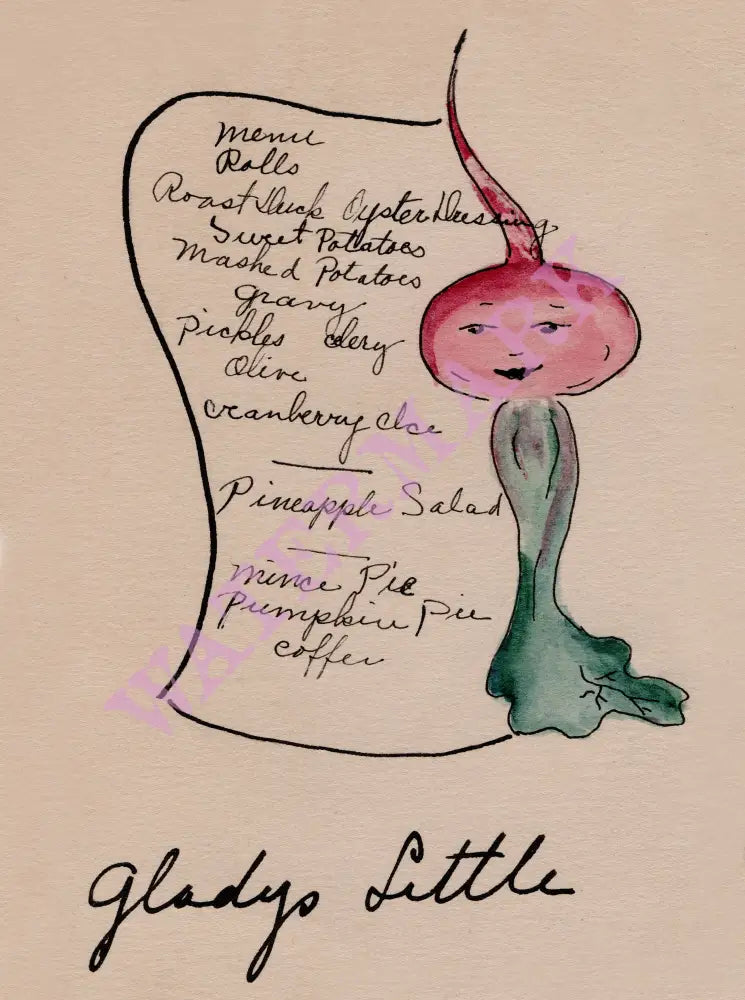 Menu
Rolls
Roast Duck Oyster Dressing
Sweet Potatoes
Mashed Potatoes
gravy
Pickles celery
Olive
cranberry Ice
Pineapple Salad
Mince Pie
Pumpkin Pie
coffee
Gladys Little
WATERMARK